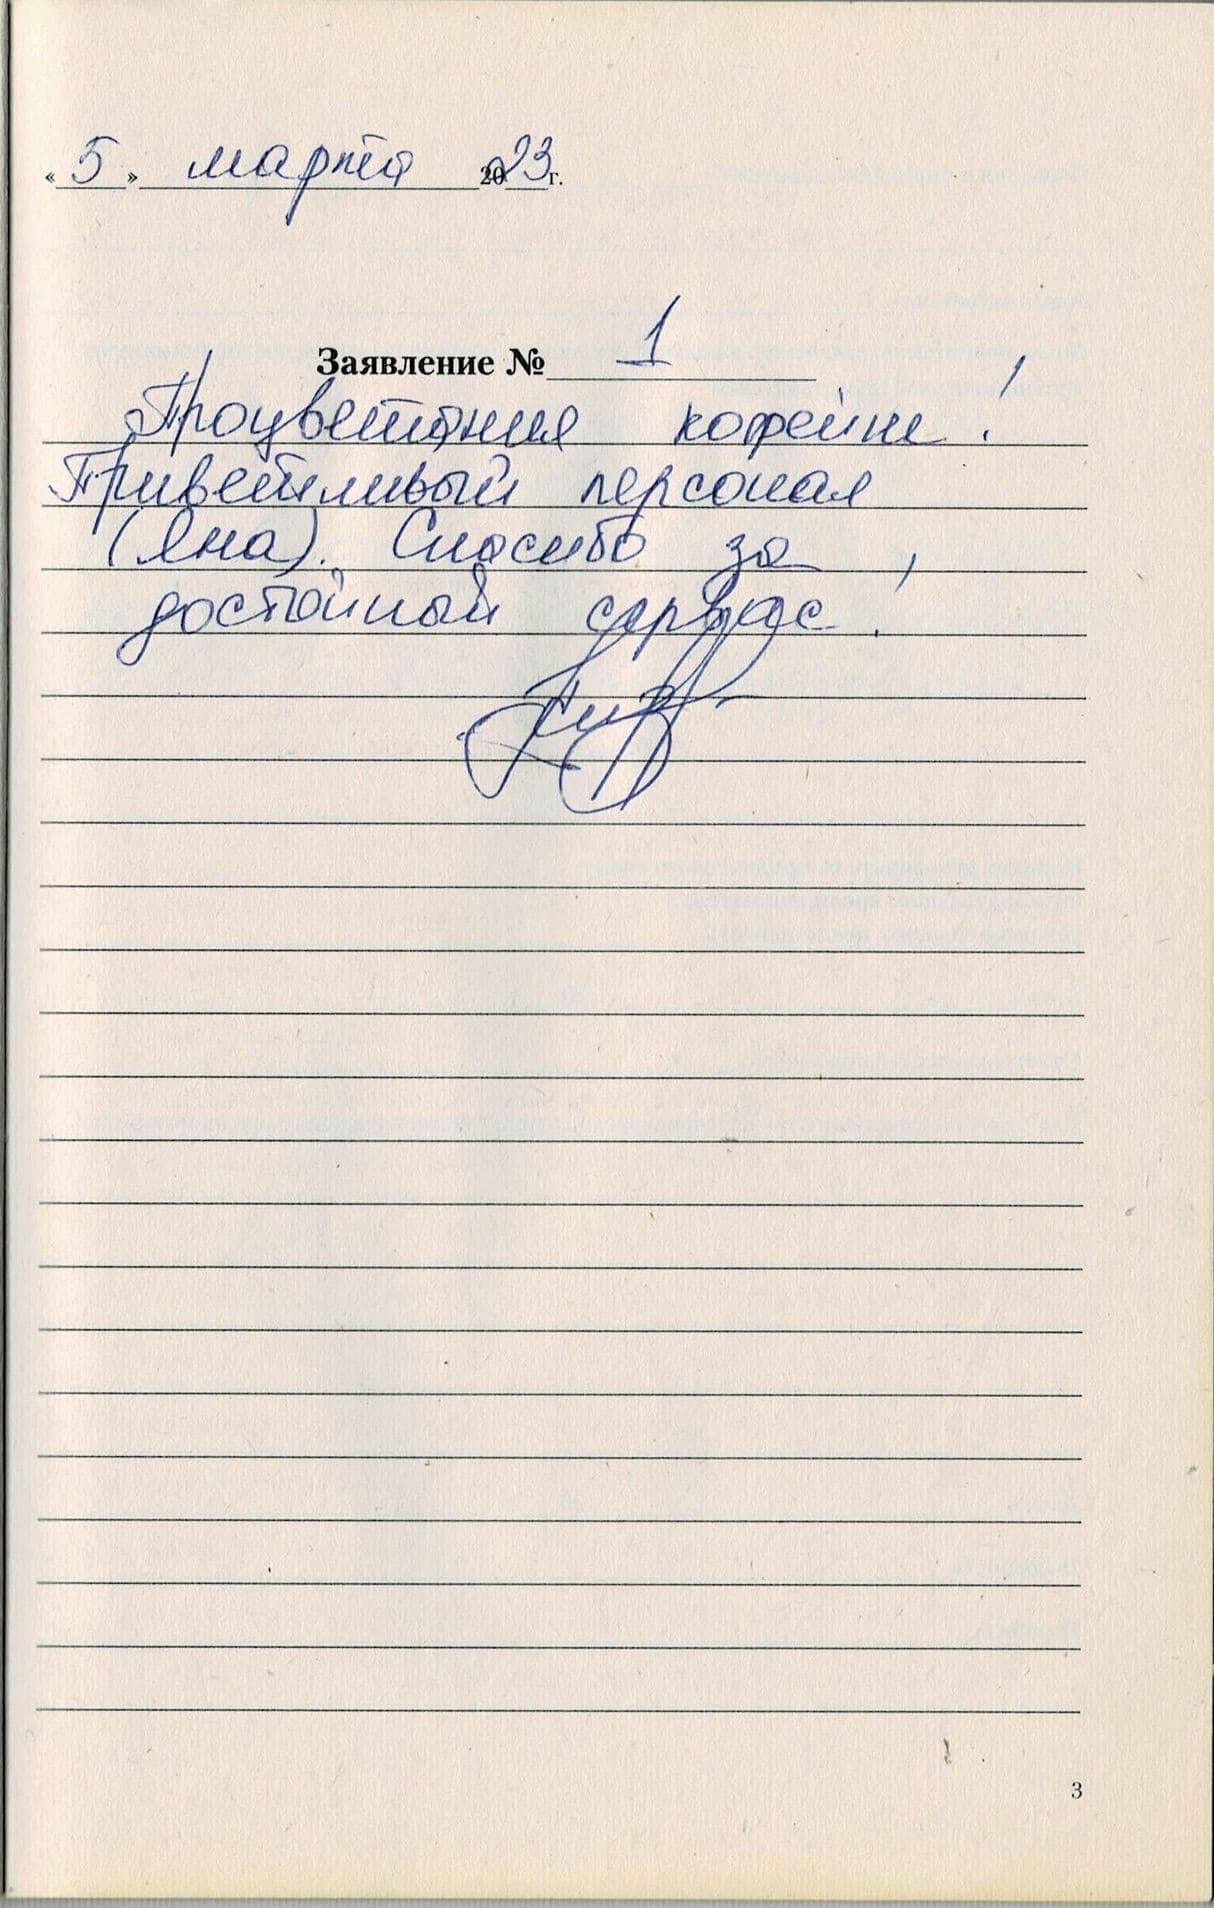 «5» марта 2023г.
Заявление № 1
Процветания кофейне!
Приветливый персонал
(Яна). Спасибо за
достойный сервис!
3